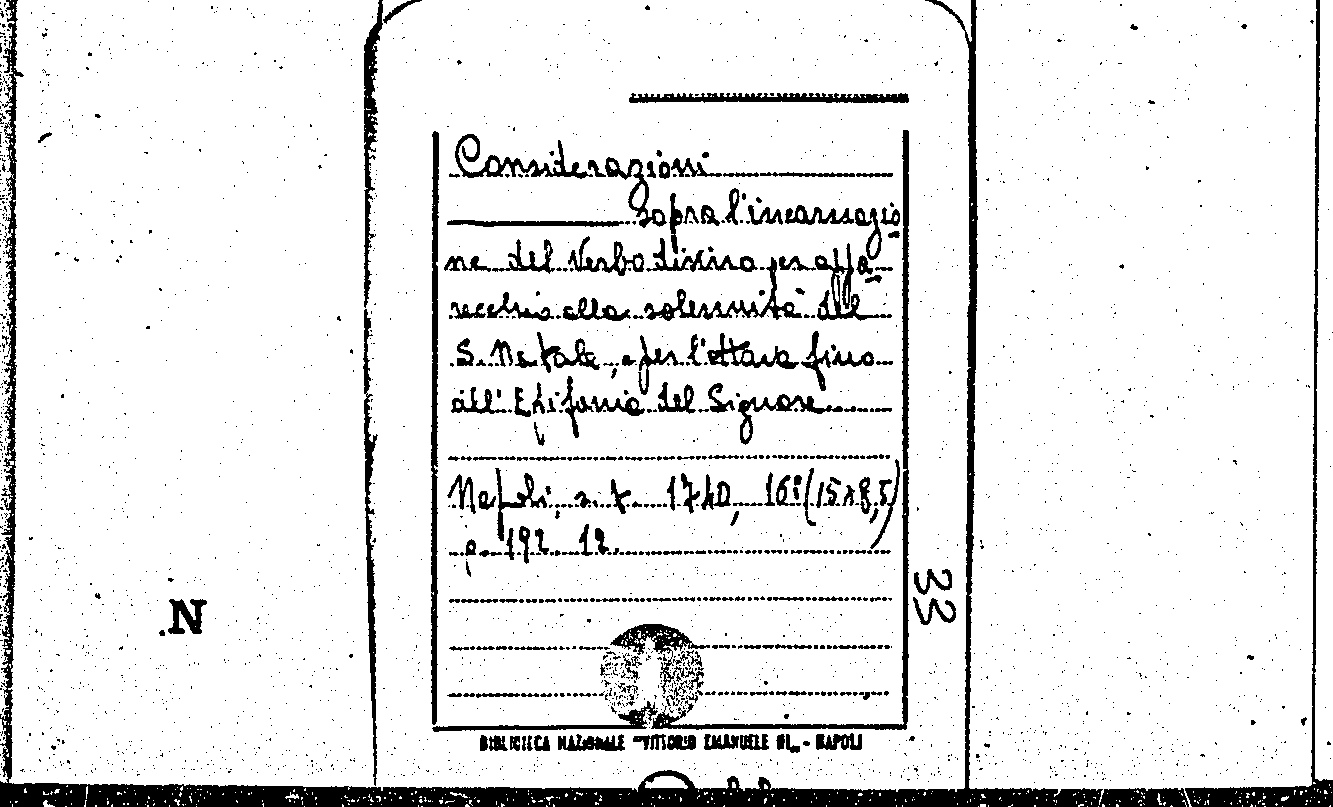 Considerazioni
Sopra l'incarnazio
ne del Verbo divino per appa
recchio alla solennità del
S. Natale, e per l'ottava fino
all'Epifania del Signore.
Napoli, s. t. 1740, 16º (15x8,5)
p. 192. 12.
33
.N
BIBLIOTECA NAZIONALE "VITTORIO EMANUELE III„ - NAPOLI